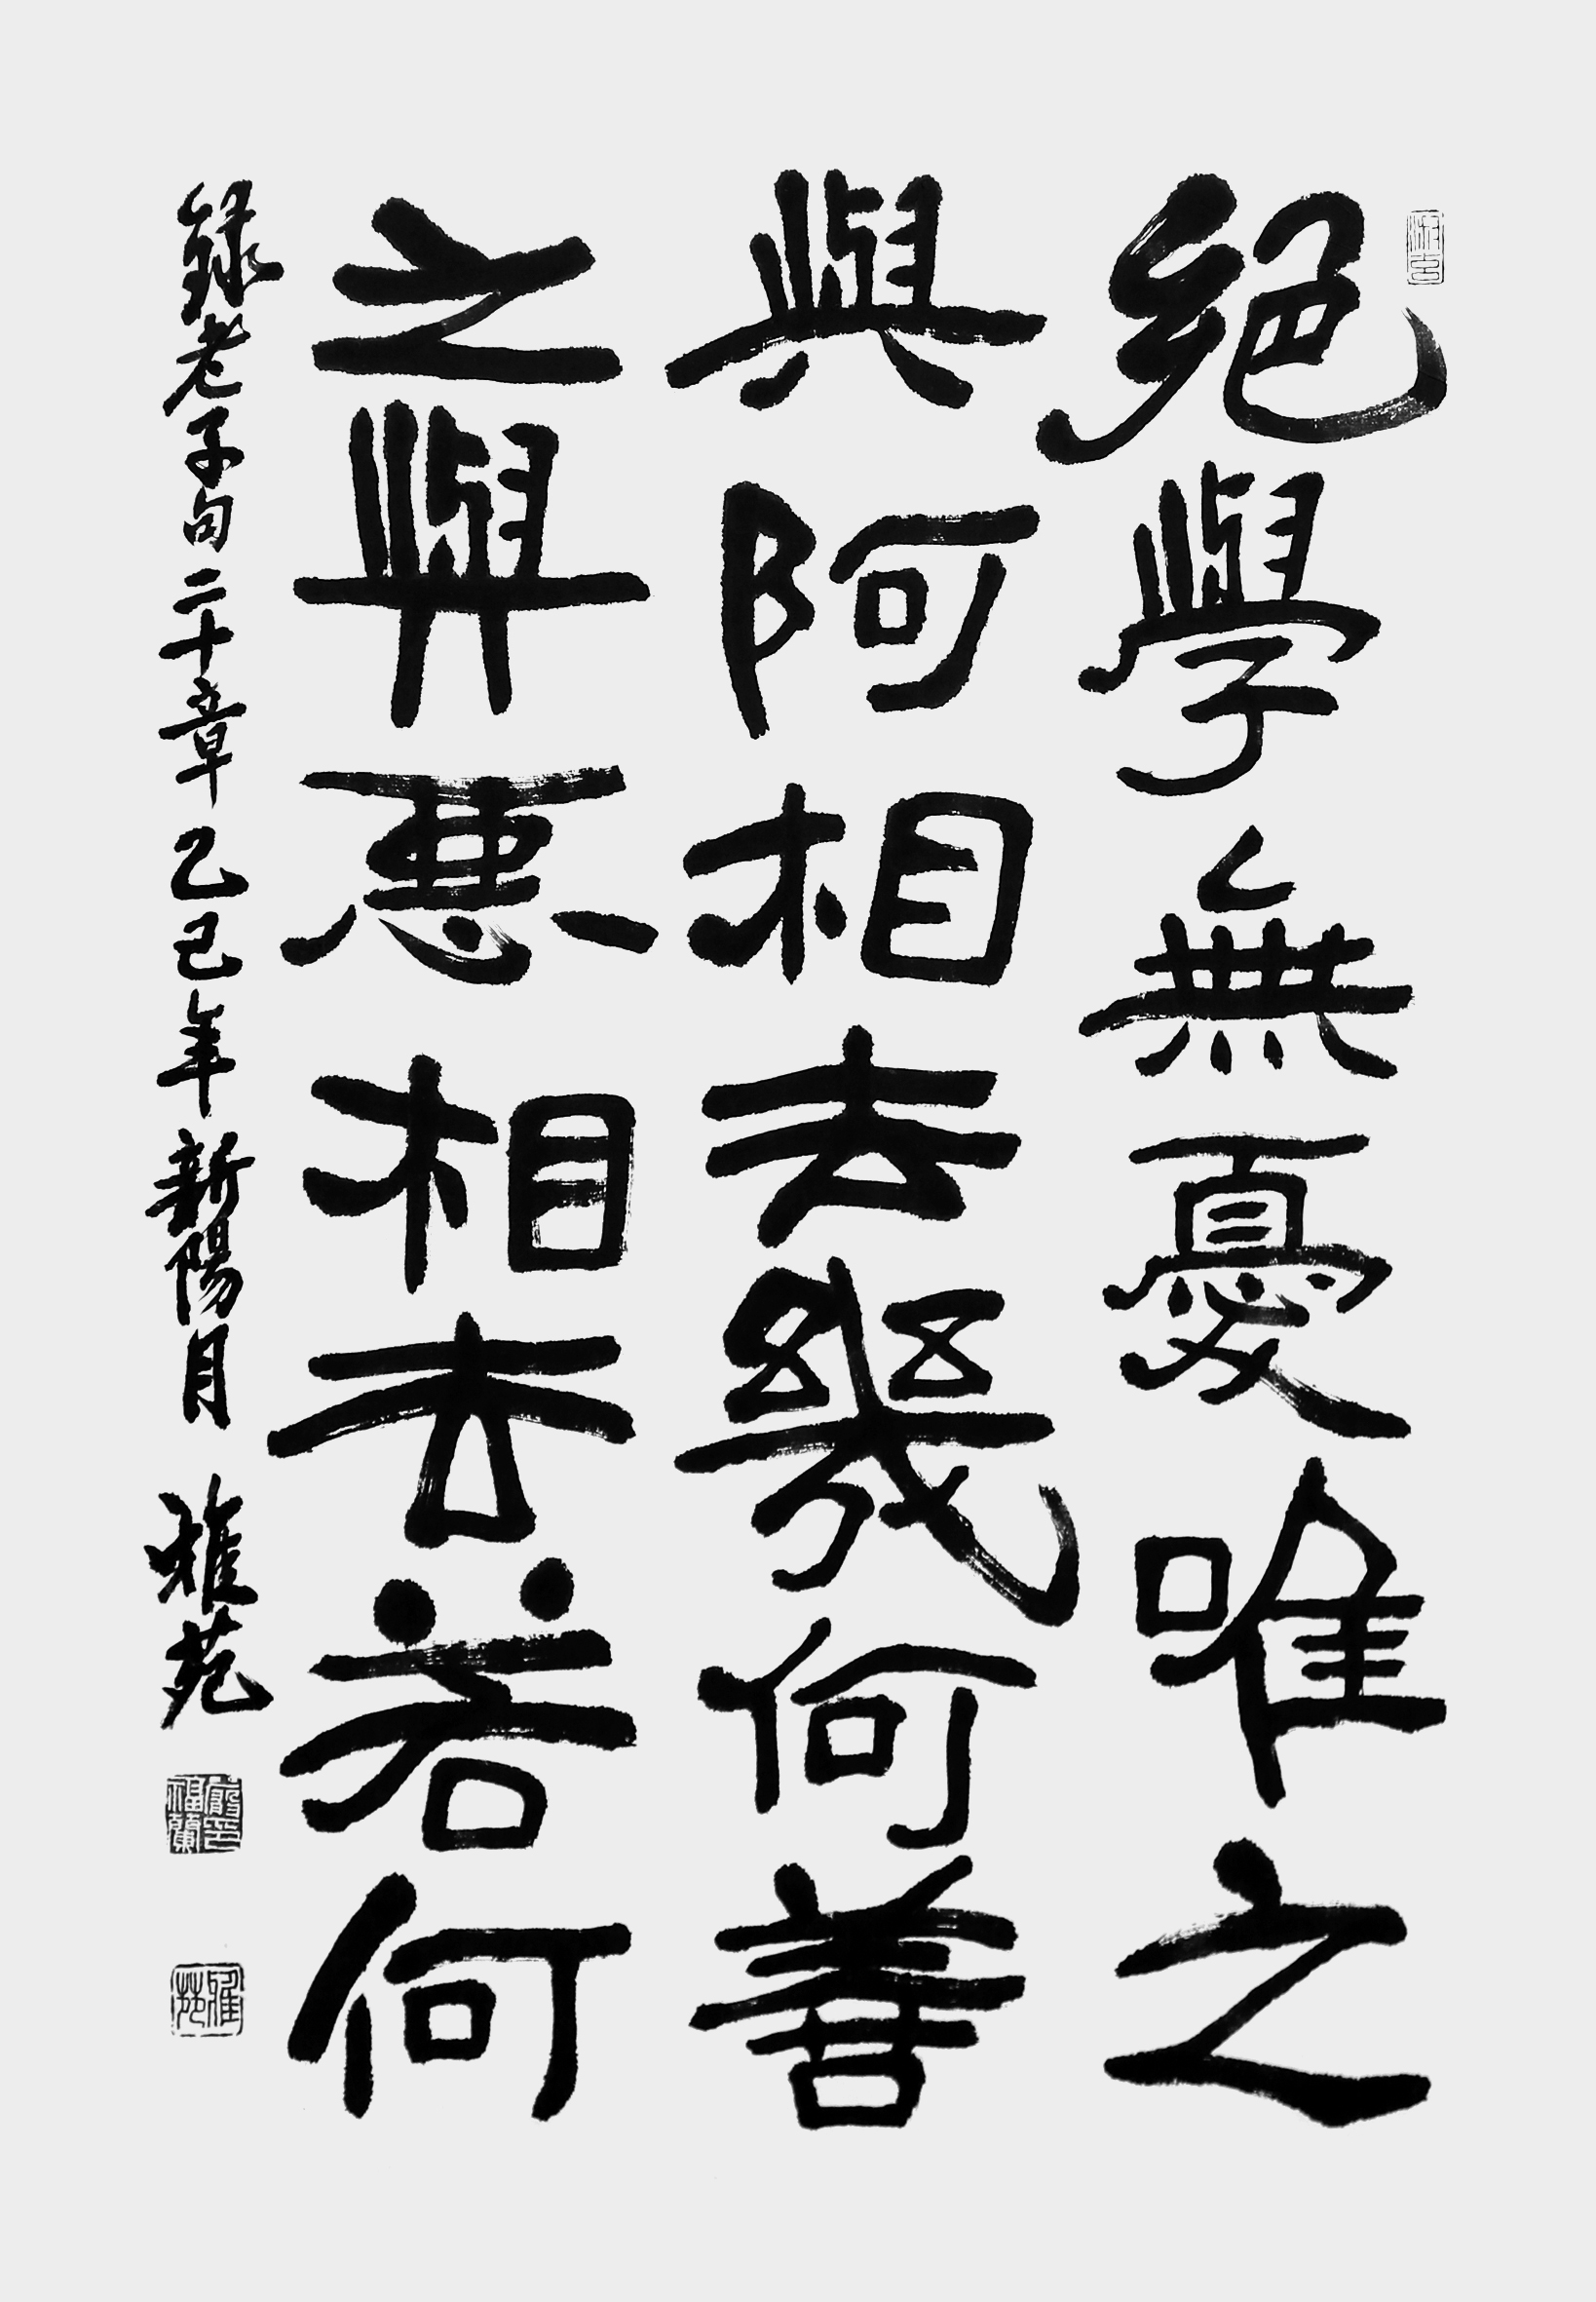 絕學無憂唯之
與阿相去幾何善
之與惡相去若何
錄老子句二十章 乙巳年新陽月 雅苑
雅苑